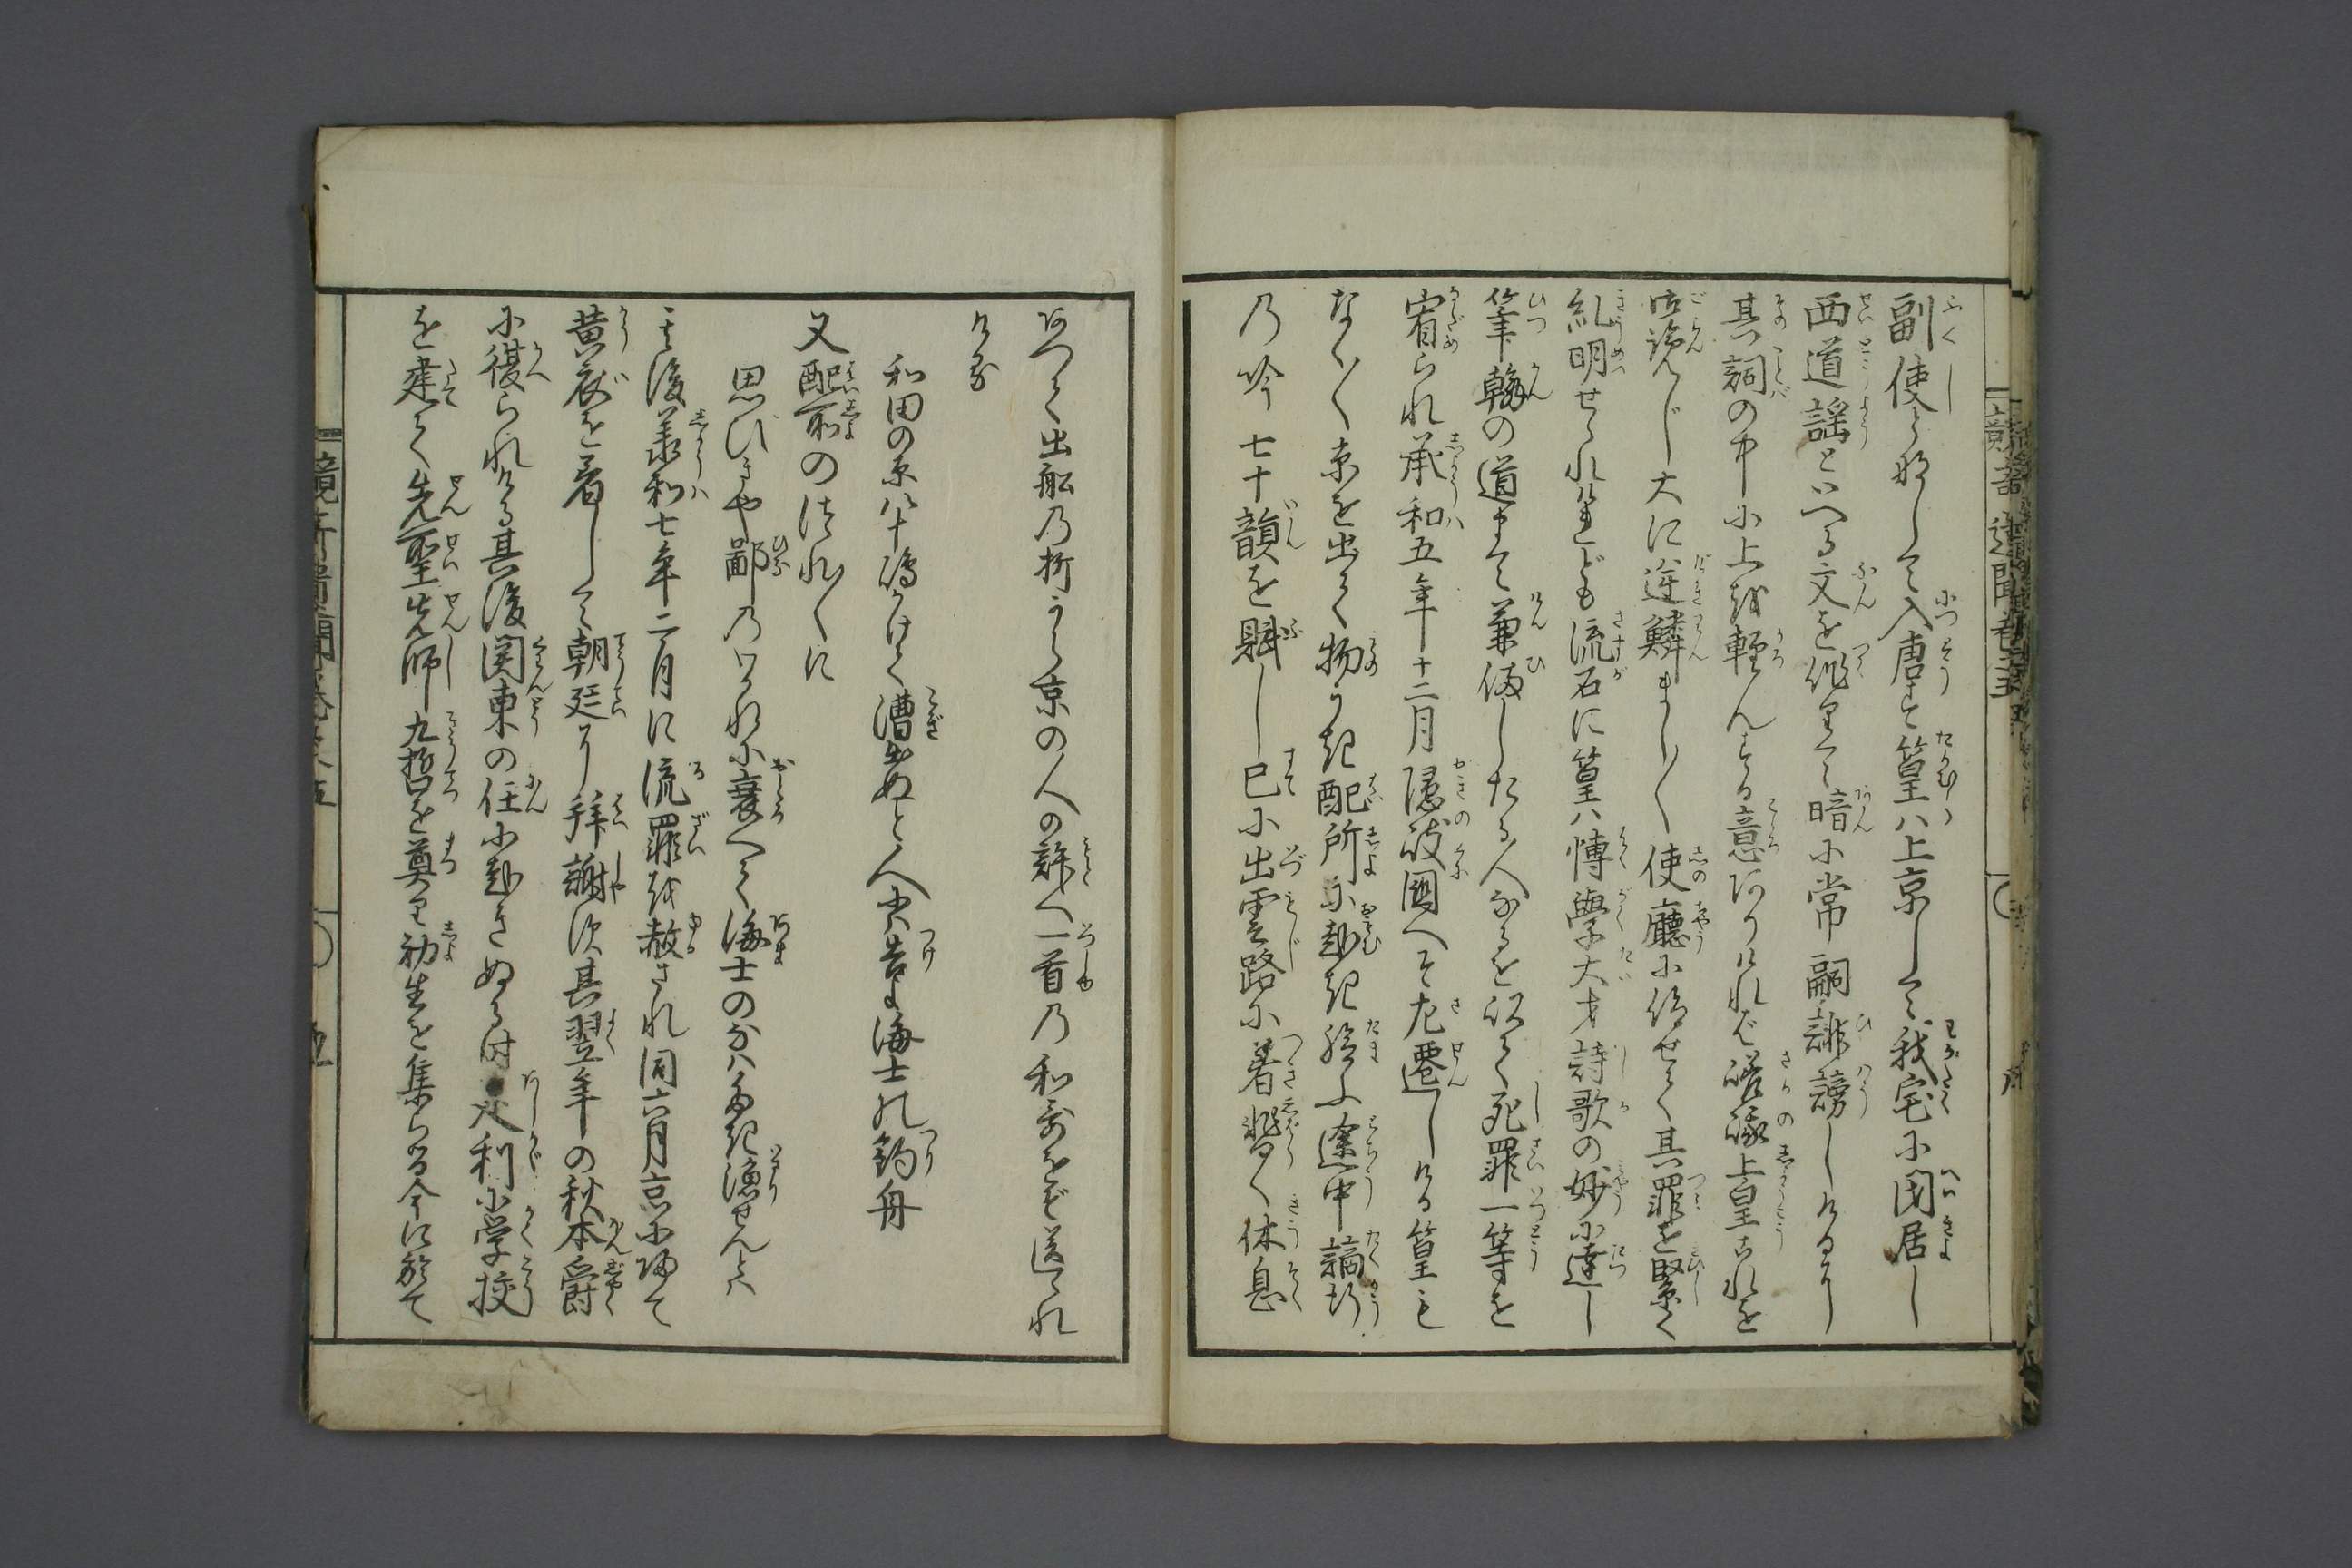 副使となして入唐す篁ハ上京して我宅に閉居し
西道謡といへる文を作りて暗に常嗣を誹謗しけるに
其詞の中に上を軽んずる意ありければ嵯峨上皇これを
御覧じ大に逆鱗まし〳〵使廳に仰せて其罪を緊く
糺明せられけれども流石に篁ハ博學大才詩歌の妙に達し
筆翰の道まで兼備したる人なるを以て死罪一等を
宥られ承和五年十二月隠岐國へぞ左遷しける篁も
なく〳〵京を出て物うき配所に趣き給ふ途中謫行
乃吟七十韻を賦し已に出雲路に着暫く休息
ありて出船乃折から京の人の許へ一首乃和哥をぞ送られ
ける
和田の原八十嶋かけて漕出ぬと人にハ告よ海士の釣舟
又配所のつれ〳〵に
思ひきや鄙乃わかれに衰へて海士のなハたき漁せんとハ
其後承和七年二月に流罪を赦され同六月京に帰て
黄衣を着して朝廷に拝謝す其翌年の秋本爵
に復られける其後関東の任に趣きぬる時足利に学校
を建て先聖先師九哲を奠り初生を集らる今に於て